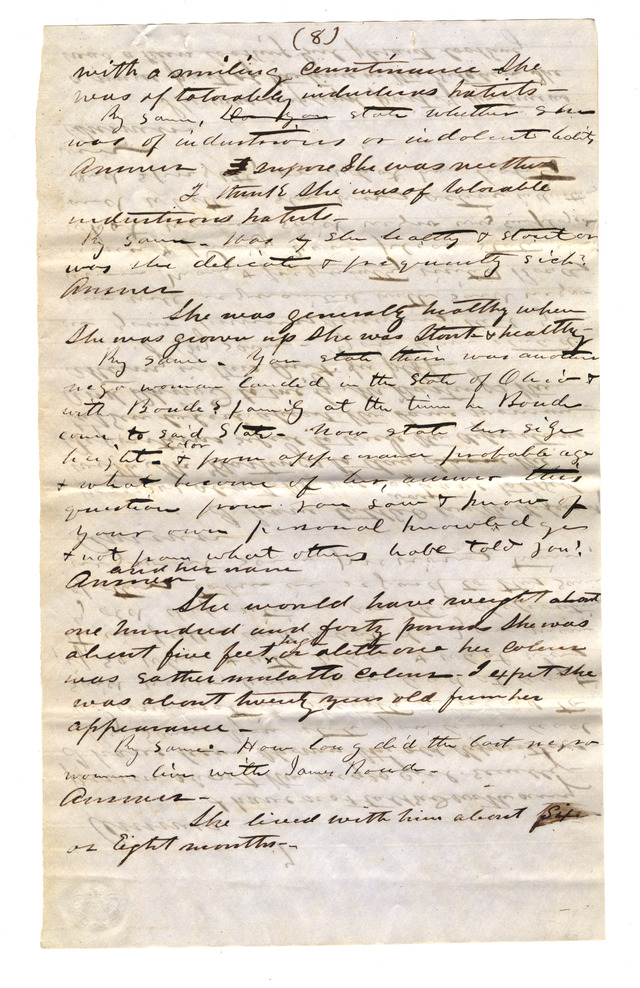 (8)
with a smiling countinance She
was of tolorabley industrious habits -
By Same, Do you state whether She
was of industrious or indolent habits
Answer I supose She was neither
I think She was of tolorable
industrious habits -
By Same - Was she healthy & stout or
was she delicate & frequently sick?
Answer
She was generaly healthy when
She was grown up She was Stout & healthy -
By Same - You state their was another
negro woman landed in the State of Ohio &
with Bouds family at the time he Boud
come to said State - Now state her size
color
height - & from appearance probable age
& what become of her, answer this
question from you saw & know of
your own personal knowledge
& not from what others have told you?
and her name
Answer
She would have weight about
one hundred and forty pounds She was
high
about five feet or alitle one her colour
was rather mulatto colour - I expet she
was about twenty years old from her
appearance -
By Same - How long did the last negro
woman live with James Boud -
Answer -
She lived with him about Six
or Eight months -